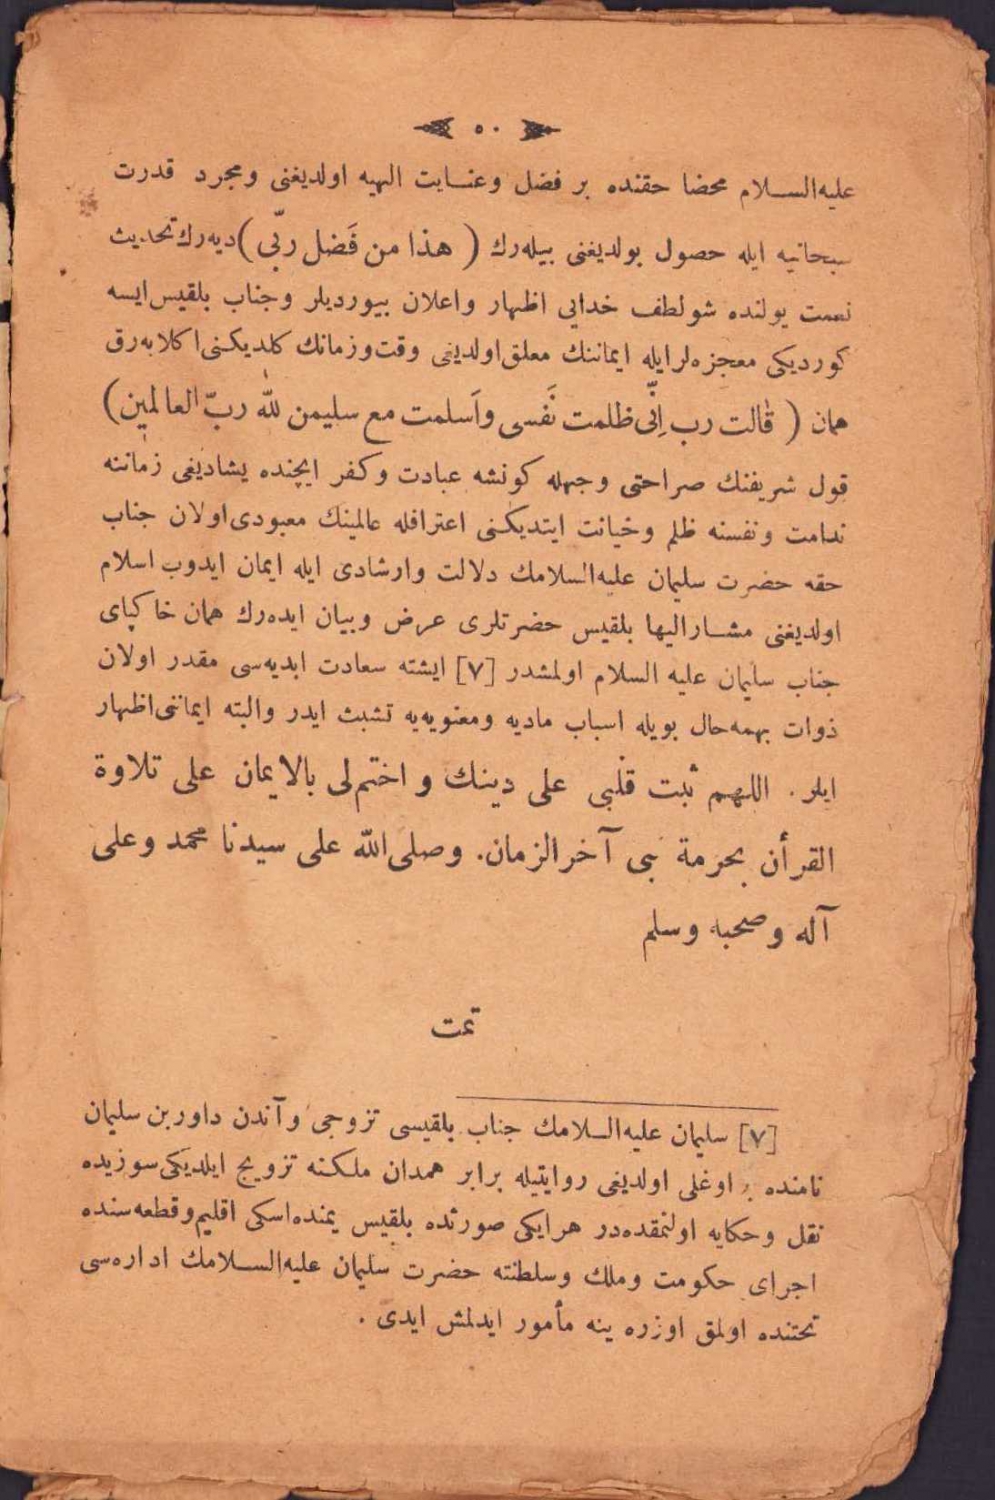 ٥٠
عليه‌السلام محضا حقنده بر فضل وعنايت الهيه اولديغنى ومجرد قدرت
سبحانيه ايله حصول بولديغنى بيله‌رك ( هذا من فَضل ربّى ) ديه‌رك تحديث
نعمت يولنده شو لطف خدايى اظهار واعلان بيورديلر وجناب بلقيس ايسه
كورديكى معجزه‌لر ايله ايماننك معلق اولديغى وقت وزمانك كلديكنى اكلايه‌رق
همان ( قالت رب اِنّى ظلمت نَفسى واَسلمت مع سليمن للّٰه ربّ العالمين )
قول شريفنك صراحتى وجهله كونشه عبادت وكفر ايچنده يشاديغى زماننه
ندامت ونفسنه ظلم وخيانت ايتديكنى اعترافله عالمينك معبودى اولان جناب
حقه حضرت سليمان عليه‌السلامك دلالت وارشادى ايله ايمان ايدوب اسلام
اولديغنى مشاراليها بلقيس حضرتلرى عرض وبيان ايده‌رك همان خاكپاى
جناب سليمان عليه السلام اولمشدر [٧] ايشته سعادت ابديه‌سى مقدر اولان
ذوات بهمه‌حال بويله اسباب ماديه ومعنويه‌يه تشبث ايدر والبته ايماننى اظهار
ايلر . اللهم ثبت قلبى على دينك و اختم لى بالايمان على تلاوة
القرأن بحرمة نبى آخر الزمان. وصلى‌اللّه على سيدنا محمد وعلى
آله وصحبه وسلم
تمت
[٧] سليمان عليه‌السلامك جناب بلقيسى تزوجى وآندن داور بن سليمان
نامنده بر اوغلى اولديغى روايتيله برابر همدان ملكنه تزويج ايلديكى سوزيده
نقل وحكايه اولنمقده‌در هر ايكى صورتده بلقيس يمنده اسكى اقليم وقطعه‌سنده
اجراى حكومت وملك وسلطنته حضرت سليمان عليه‌السلامك اداره‌سى
تحتنده اولمق اوزره ينه مأمور ايدلمش ايدى .